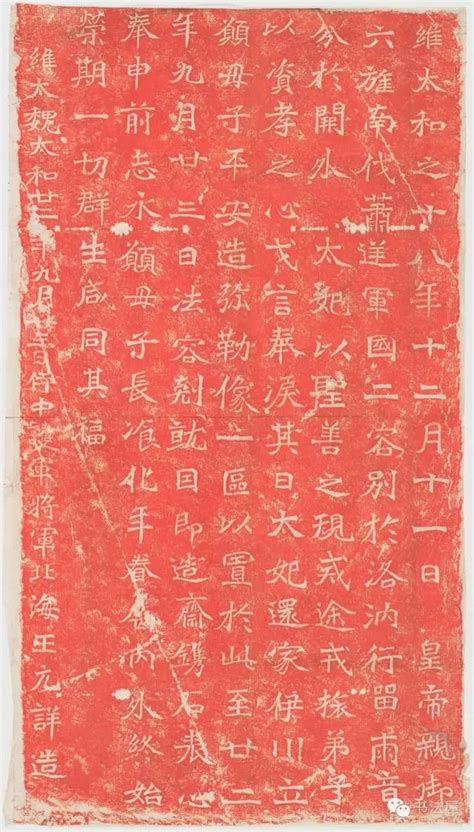 維太和之十八年十二月十一日 皇帝親御
六旌南伐蕭逆軍國二容別於洛汭行留兩音
分於闕外 太妃以聖善之規戒途戎旅弟子
以資孝之心戈言奉淚其日太妃還家伊川立
願母子平安造弥勒像一區以置於此至廿二
年九月廿三日法容剋就因即造齋鐫石表心
奉申前志永願母子長瘳化年眷屬內外終始
榮期一切群生咸同其福
維太魏太和廿二年九月廿三日侍中護軍將軍北海王元詳造
书法屋